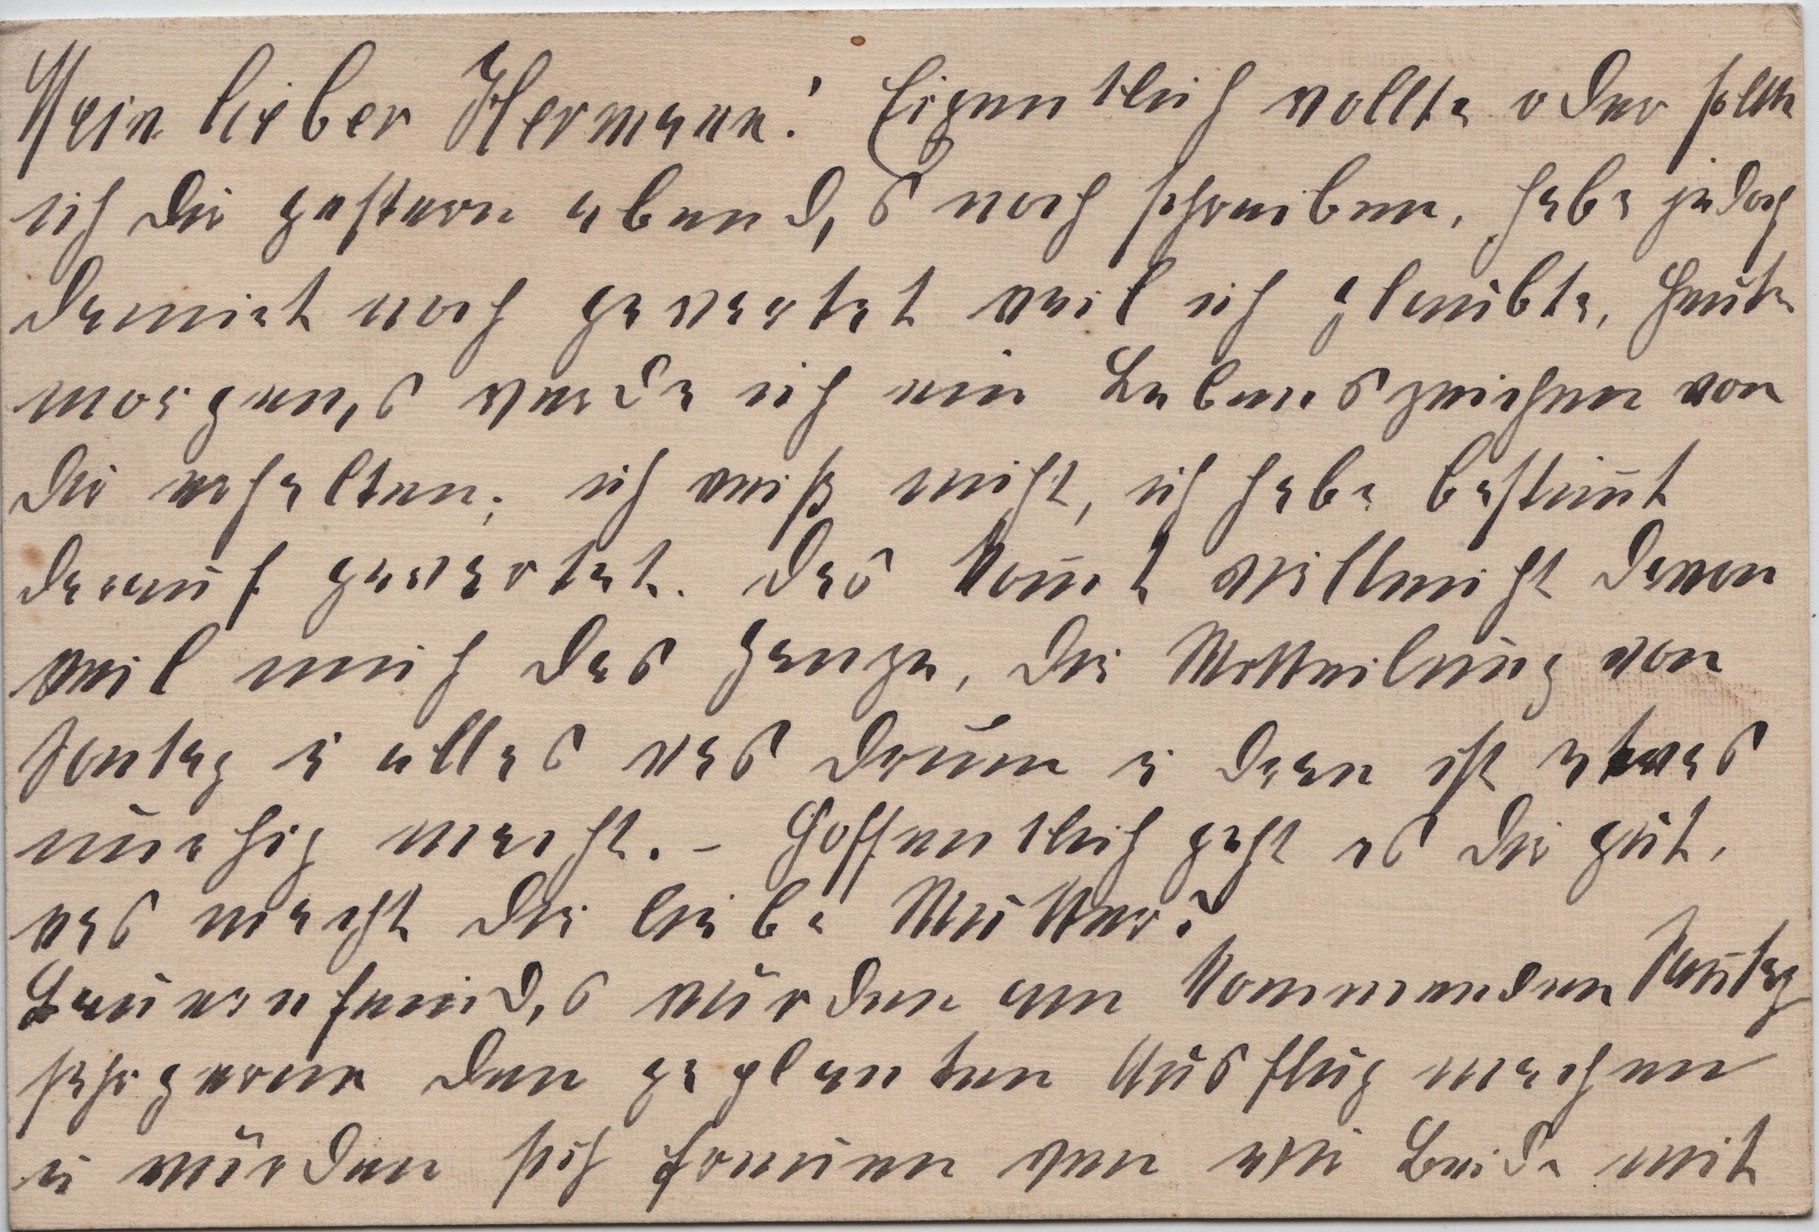 Mein lieber Hermann! Eigentlich wollte oder sollte
ich Dir gestern abend,s noch schreiben, habe jedoch
damit noch gewartet weil ich glaubte, heute
morgen,s werde ich ein Lebenszeichen von
Dir erhalten; ich weiß nicht, ich habe bestim̅t
darauf gewartet. Das kom̅t vielleicht davon
weil mich das Ganze, die Mitteilung von
Sontag u alles was drum u dran ist etwas
unruhig macht. – Hoffentlich geht es Dir gut,
was macht die liebe Mutter?
würden am kommenden Sontag
sehr gerne den geplanten Ausflug machen
u würden sich freuen wen wir Beide mit